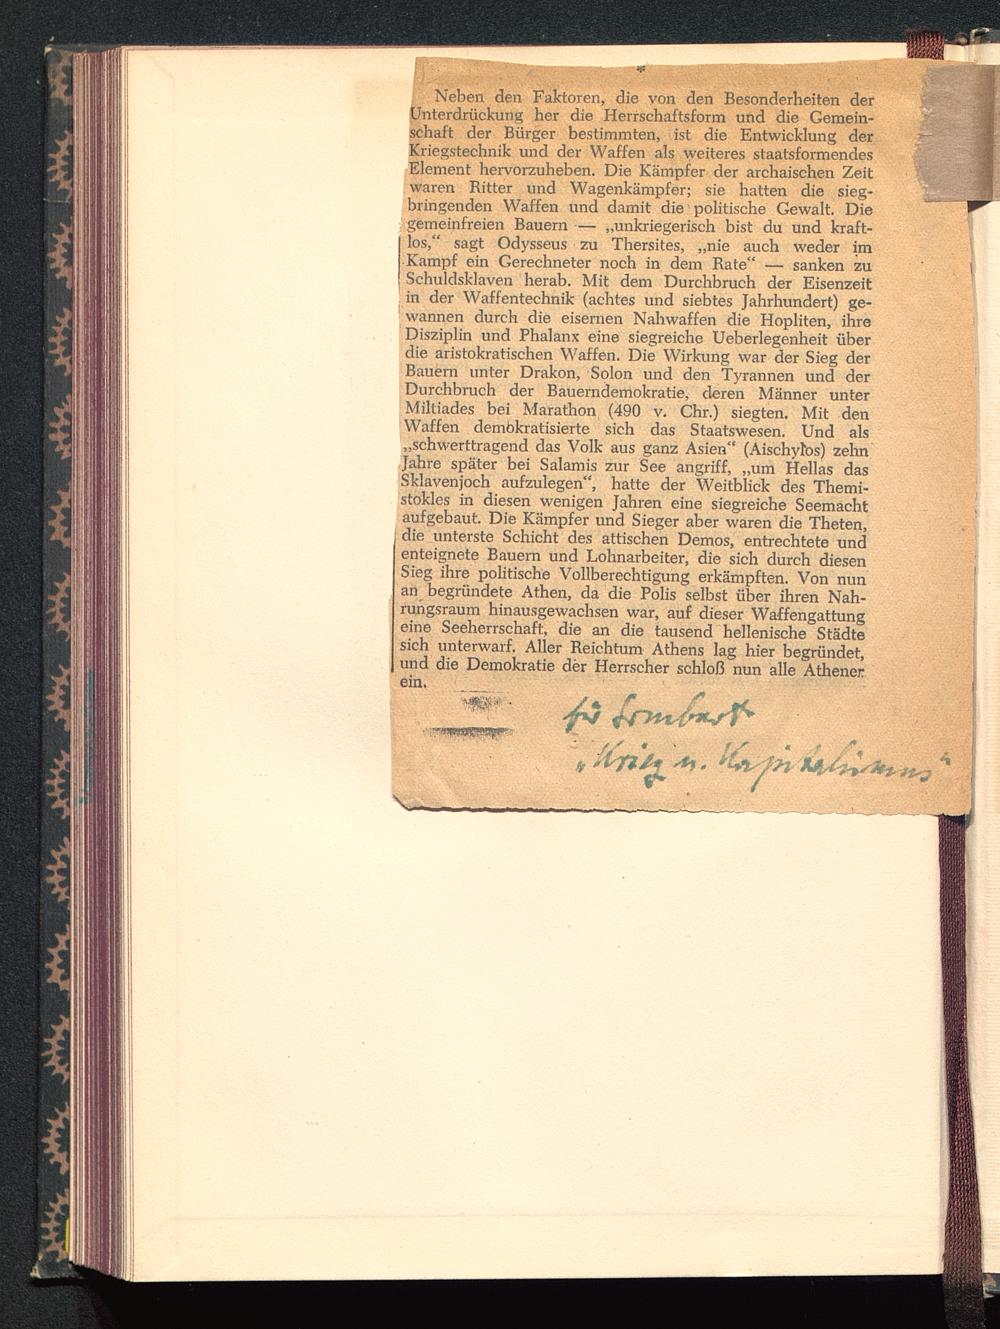 Neben den Faktoren, die von den Besonderheiten der
Unterdrückung her die Herrschaftsform und die Gemein-
schaft der Bürger bestimmten, ist die Entwicklung der
Kriegstechnik und der Waffen als weiteres staatsformendes
Element hervorzuheben. Die Kämpfer der archaischen Zeit
waren Ritter und Wagenkämpfer; sie hatten die sieg-
bringenden Waffen und damit die politische Gewalt. Die
gemeinfreien Bauern — „unkriegerisch bist du und kraft-
los,“ sagt Odysseus zu Thersites, „nie auch weder im
Kampf ein Gerechneter noch in dem Rate“ — sanken zu
Schuldsklaven herab. Mit dem Durchbruch der Eisenzeit
in der Waffentechnik (achtes und siebtes Jahrhundert) ge-
wannen durch die eisernen Nahwaffen die Hopliten, ihre
Disziplin und Phalanx eine siegreiche Ueberlegenheit über
die aristokratischen Waffen. Die Wirkung war der Sieg der
Bauern unter Drakon, Solon und den Tyrannen und der
Durchbruch der Bauerndemokratie, deren Männer unter
Miltiades bei Marathon (490 v. Chr.) siegten. Mit den
Waffen demokratisierte sich das Staatswesen. Und als
„schwerttragend das Volk aus ganz Asien“ (Aischylos) zehn
Jahre später bei Salamis zur See angriff, „um Hellas das
Sklavenjoch aufzulegen“, hatte der Weitblick des Themi-
stokles in diesen wenigen Jahren eine siegreiche Seemacht
aufgebaut. Die Kämpfer und Sieger aber waren die Theten,
die unterste Schicht des attischen Demos, entrechtete und
enteignete Bauern und Lohnarbeiter, die sich durch diesen
Sieg ihre politische Vollberechtigung erkämpften. Von nun
an begründete Athen, da die Polis selbst über ihren Nah-
rungsraum hinausgewachsen war, auf dieser Waffengattung
eine Seeherrschaft, die an die tausend hellenische Städte
sich unterwarf. Aller Reichtum Athens lag hier begründet,
und die Demokratie der Herrscher schloß nun alle Athener
ein.
für Sombart
„Krieg u. Kapitalismus“